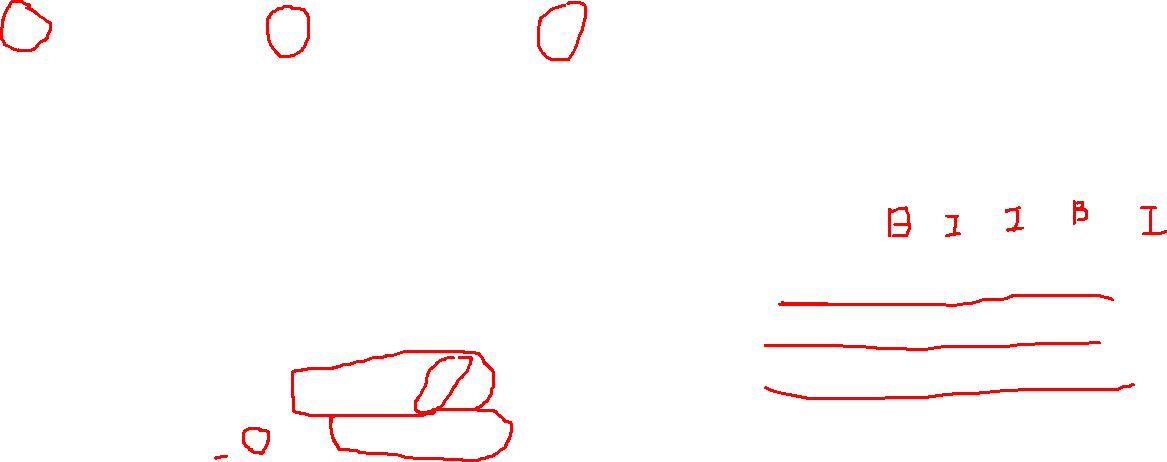 B I I B I